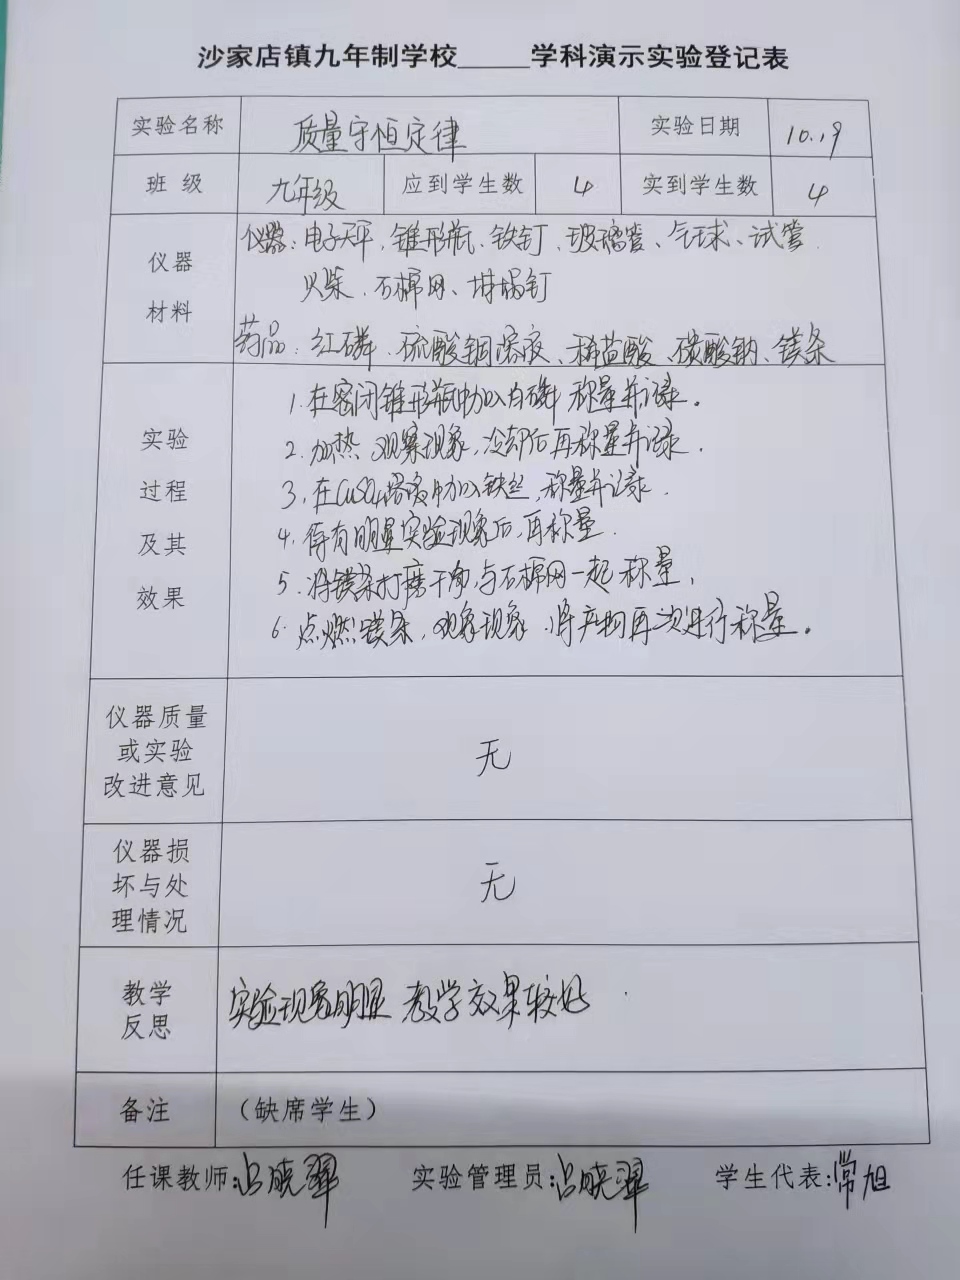 沙家店镇九年制学校_____学科演示实验登记表
实验名称 质量守恒定律 实验日期 10.19
班 级 九年级 应到学生数 4 实到学生数 4
仪器
材料
仪器:电子天平、锥形瓶、铁钉、玻璃管、气球、试管
火柴、石棉网、坩埚钉
药品:红磷、硫酸铜溶液、稀盐酸、碳酸钠、镁条
实验
过程
及其
效果
1.在密闭锥形瓶中加入白磷 称量并记录。
2.加热 观察现象,冷却后再称量并记录.
3.在CuSO4溶液中加入铁丝,称量并记录.
4.待有明显实验现象后,再称量.
5.将镁条打磨干净,与石棉网一起称量,
6.点燃镁条,观察现象.将产物再次进行称量。
仪器质量
或实验
改进意见
无
仪器损
坏与处
理情况
无
教学
反思
实验现象明显 教学效果较好
备注 (缺席学生)
任课教师:晓翠 实验管理员:晓翠 学生代表:常旭